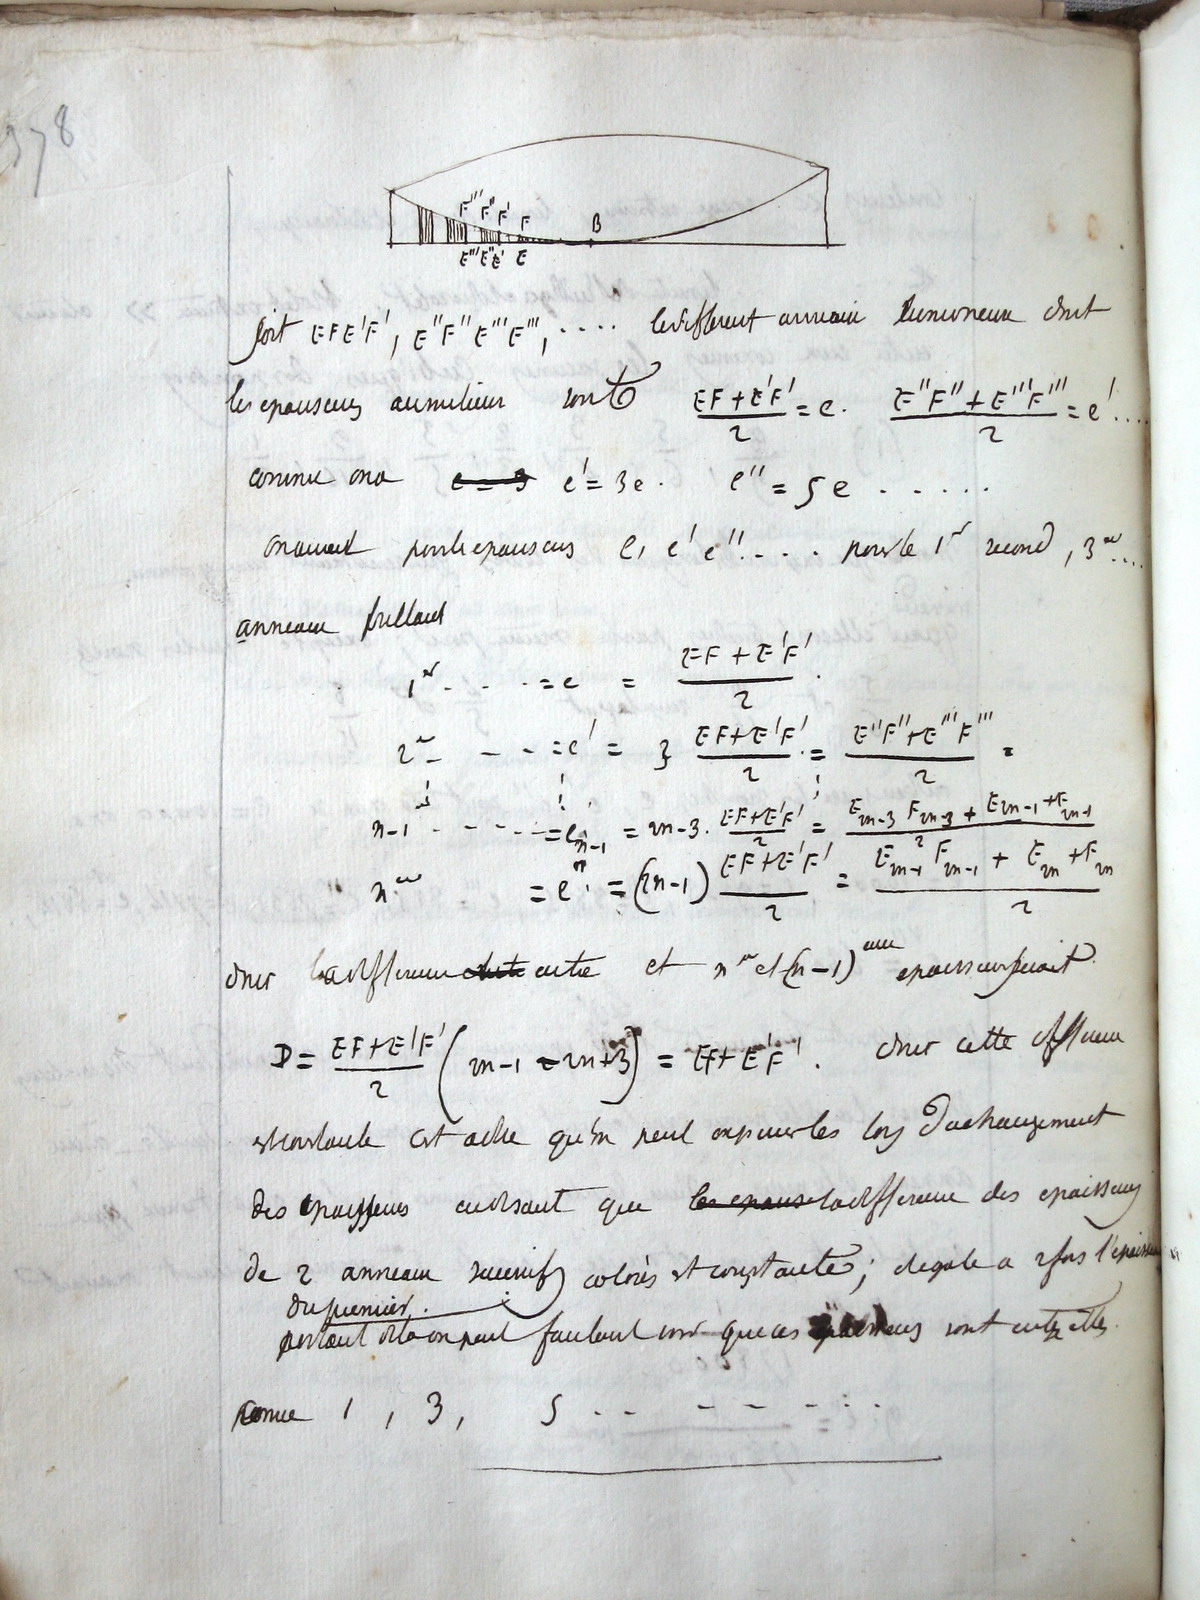 378
F''' F'' F' F B
E''' E'' E' E
soit EFE'F', E''F''E'''F''', .... les different anneaux lumineux dont
les epaisseurs au milieu sont (EF + E'F')/2 = e. (E''F'' + E'''F''')/2 = e'....
comme on a e' = 3e. e'' = 5e .....
on auroit pour les epaisseurs e, e' e''.... pour le 1er second, 3me....
anneaux brillant
1er .... = e = (EF + E'F')/2.
2me - .. = e' = 3 (EF+E'F')/2 = (E''F''+E'''F''')/2
n-1 ...... = e n-1 = 2n-3. (EF+E'F')/2 = (E2n-3 F2n-3 + E2n-1 + F2n-1)/2
nme = en = (2n-1) (EF+E'F')/2 = (E2n-1 F2n-1 + E2n + F2n)/2
donc la difference entre et nme et (n-1)eme epaisseur seroit
D = (EF+E'F')/2 (2n-1 - 2n+3) = EF+E'F'. donc cette difference
est constante c'est a dire qu'on peut exprimer les loix du changement
des epaisseurs en disant que la difference des epaisseurs
de 2 anneaux successifs colorés est constante; et egale a 2 fois l'epaisseur
du premier.
partant de la on peut voir que ces epaisseurs sont entre elles
comme 1, 3, 5 .. - - - ...